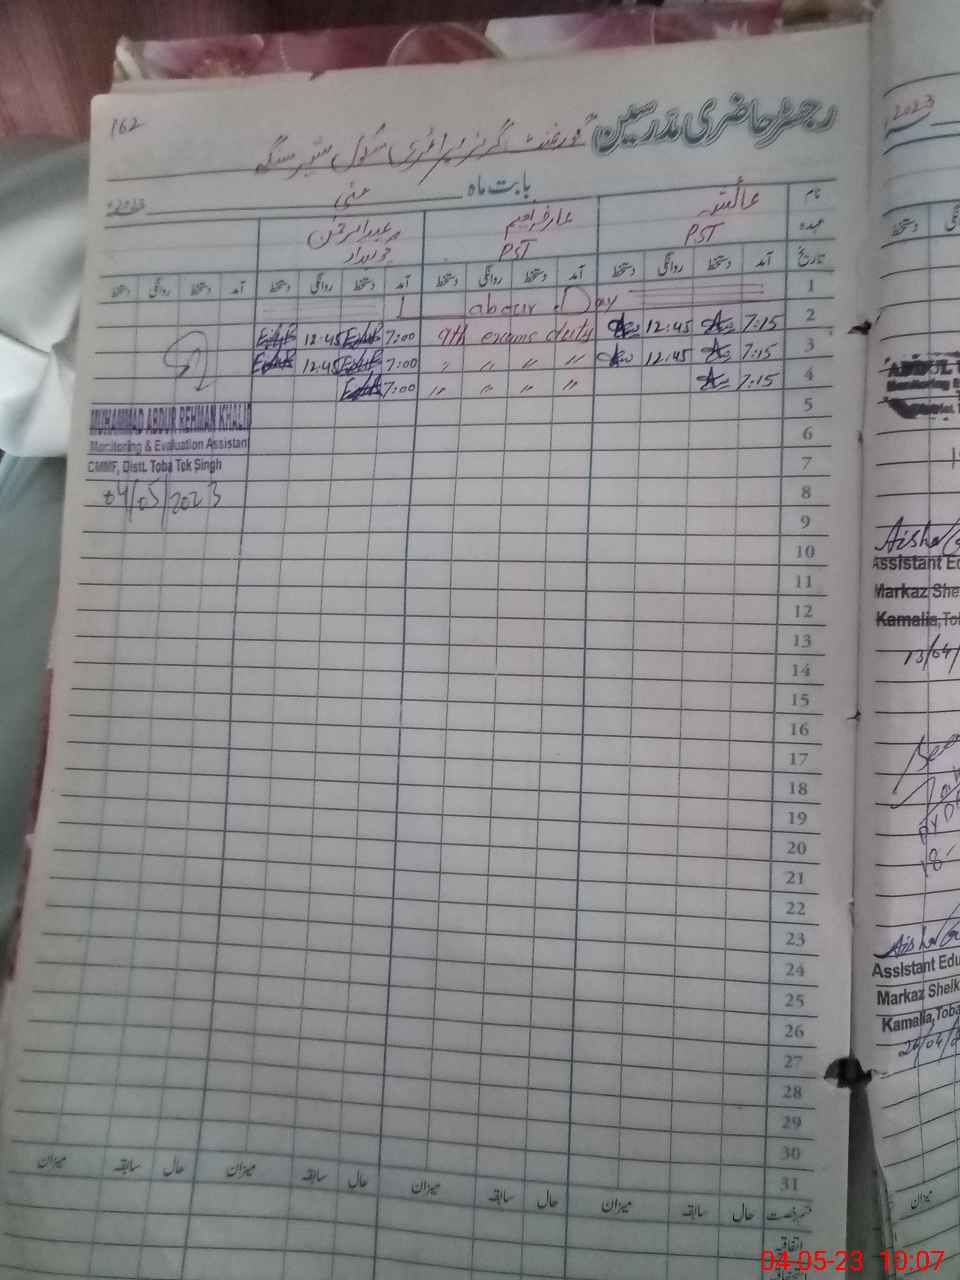 162
رجسٹر حاضری مدرسین گورنمنٹ گرلز پرائمری سکول
بابت ماہ مئی 2023ء
نام عائشہ
عہدہ PST PST چوکیدار
تاریخ آمد دستخط روانگی دستخط آمد دستخط روانگی دستخط آمد دستخط روانگی دستخط آمد دستخط روانگی دستخط
1 Labour Day
2 7:15 12:45 9th exams duty 7:00 12:45
3 7:15 12:45 〃 〃 〃 〃 7:00 12:45
4 7:15 〃 〃 〃 〃 7:00
5
6
7
8
9
10
11
12
13
14
15
16
17
18
19
20
21
22
23
24
25
26
27
28
29
30
31
MUHAMMAD ABDUR REHMAN KHALID
Monitoring & Evaluation Assistant
CMMF, Distt. Toba Tek Singh
04/05/2023
حال سابقہ میزان حال سابقہ میزان حال سابقہ میزان حال سابقہ میزان
اتفاقیہ
2023
دستخط
ABDUL
Monitoring &
District T
Aisha
Assistant Ed
Markaz She
Kamalia, To
13/04/
18-
Aisha
Assistant Edu
Markaz Sheik
Kamalia, Toba
میزان
04-05-23 10:07